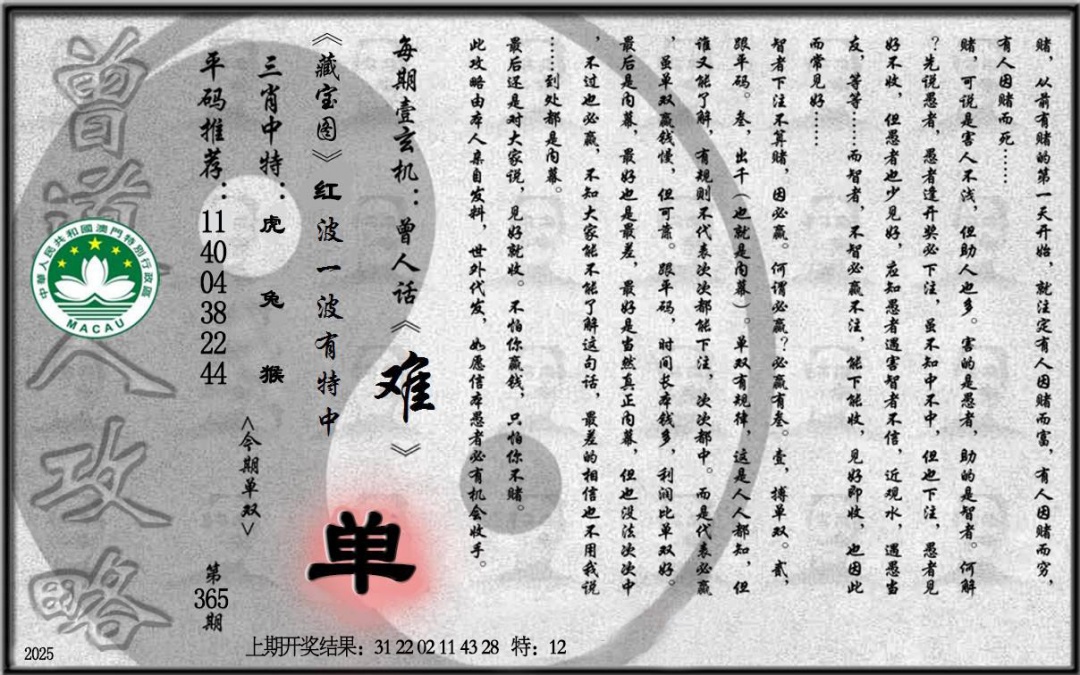 赌，从前有赌的第一天开始，就注定有人因赌而富，有人因赌而穷，
有人因赌而死……
赌，可说是害人不浅，但助人也多。害的是愚者，助的是智者。何解
？先说愚者，愚者逢开奖必下注，虽不知中不中，但也下注，愚者见
好不收，但愚者也少见好，应知愚者遇害智者不信，近观水，遇愚当
友，等等……而智者，不智必赢不注，能下能收，见好即收，也因此
而常见好……
智者下注不算赌，因必赢。何谓必赢？必赢有叁。壹，搏单双。贰，
跟单码。叁，出千（也就是内幕）。单双有规律，这是人人都知，但
谁又能了解，有规则不代表次次都能下注，次次都中。而是代表必赢
，虽单双赢钱慢，但可靠。跟单码，时间长本钱多，利润比单双好。
最后是内幕，最好也是最差，最好是当然真正内幕，但也没法次次中
，不过也必赢，不知大家能不能了解这句话，最差的相信也不用我说
……到处都是内幕。
最后还是对大家说，见好就收。不怕你赢钱，只怕你不赌。
此攻略由本人亲自发料，世外代发，如愿信本愚者必有机会收手。
每期壹玄机：曾人话《难》
《藏宝图》红波一波有特中
三肖中特：虎 兔 猴
平码推荐：11 40 04 38 22 44
<今期单双>
单
第365期
曾道人攻略
中華人民共和國澳門特別行政區
MACAU
上期开奖结果：31 22 02 11 43 28 特：12
2025